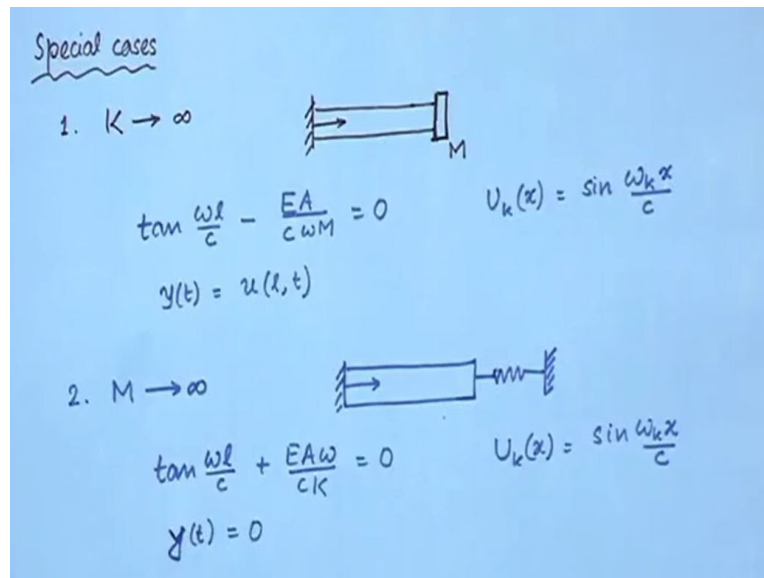 Special cases
1. K → ∞
M
tan ωl/c - EA/cωM = 0
U_k(x) = sin ω_k x/c
y(t) = u(l,t)
2. M → ∞
tan ωl/c + EAω/cK = 0
U_k(x) = sin ω_k x/c
y(t) = 0